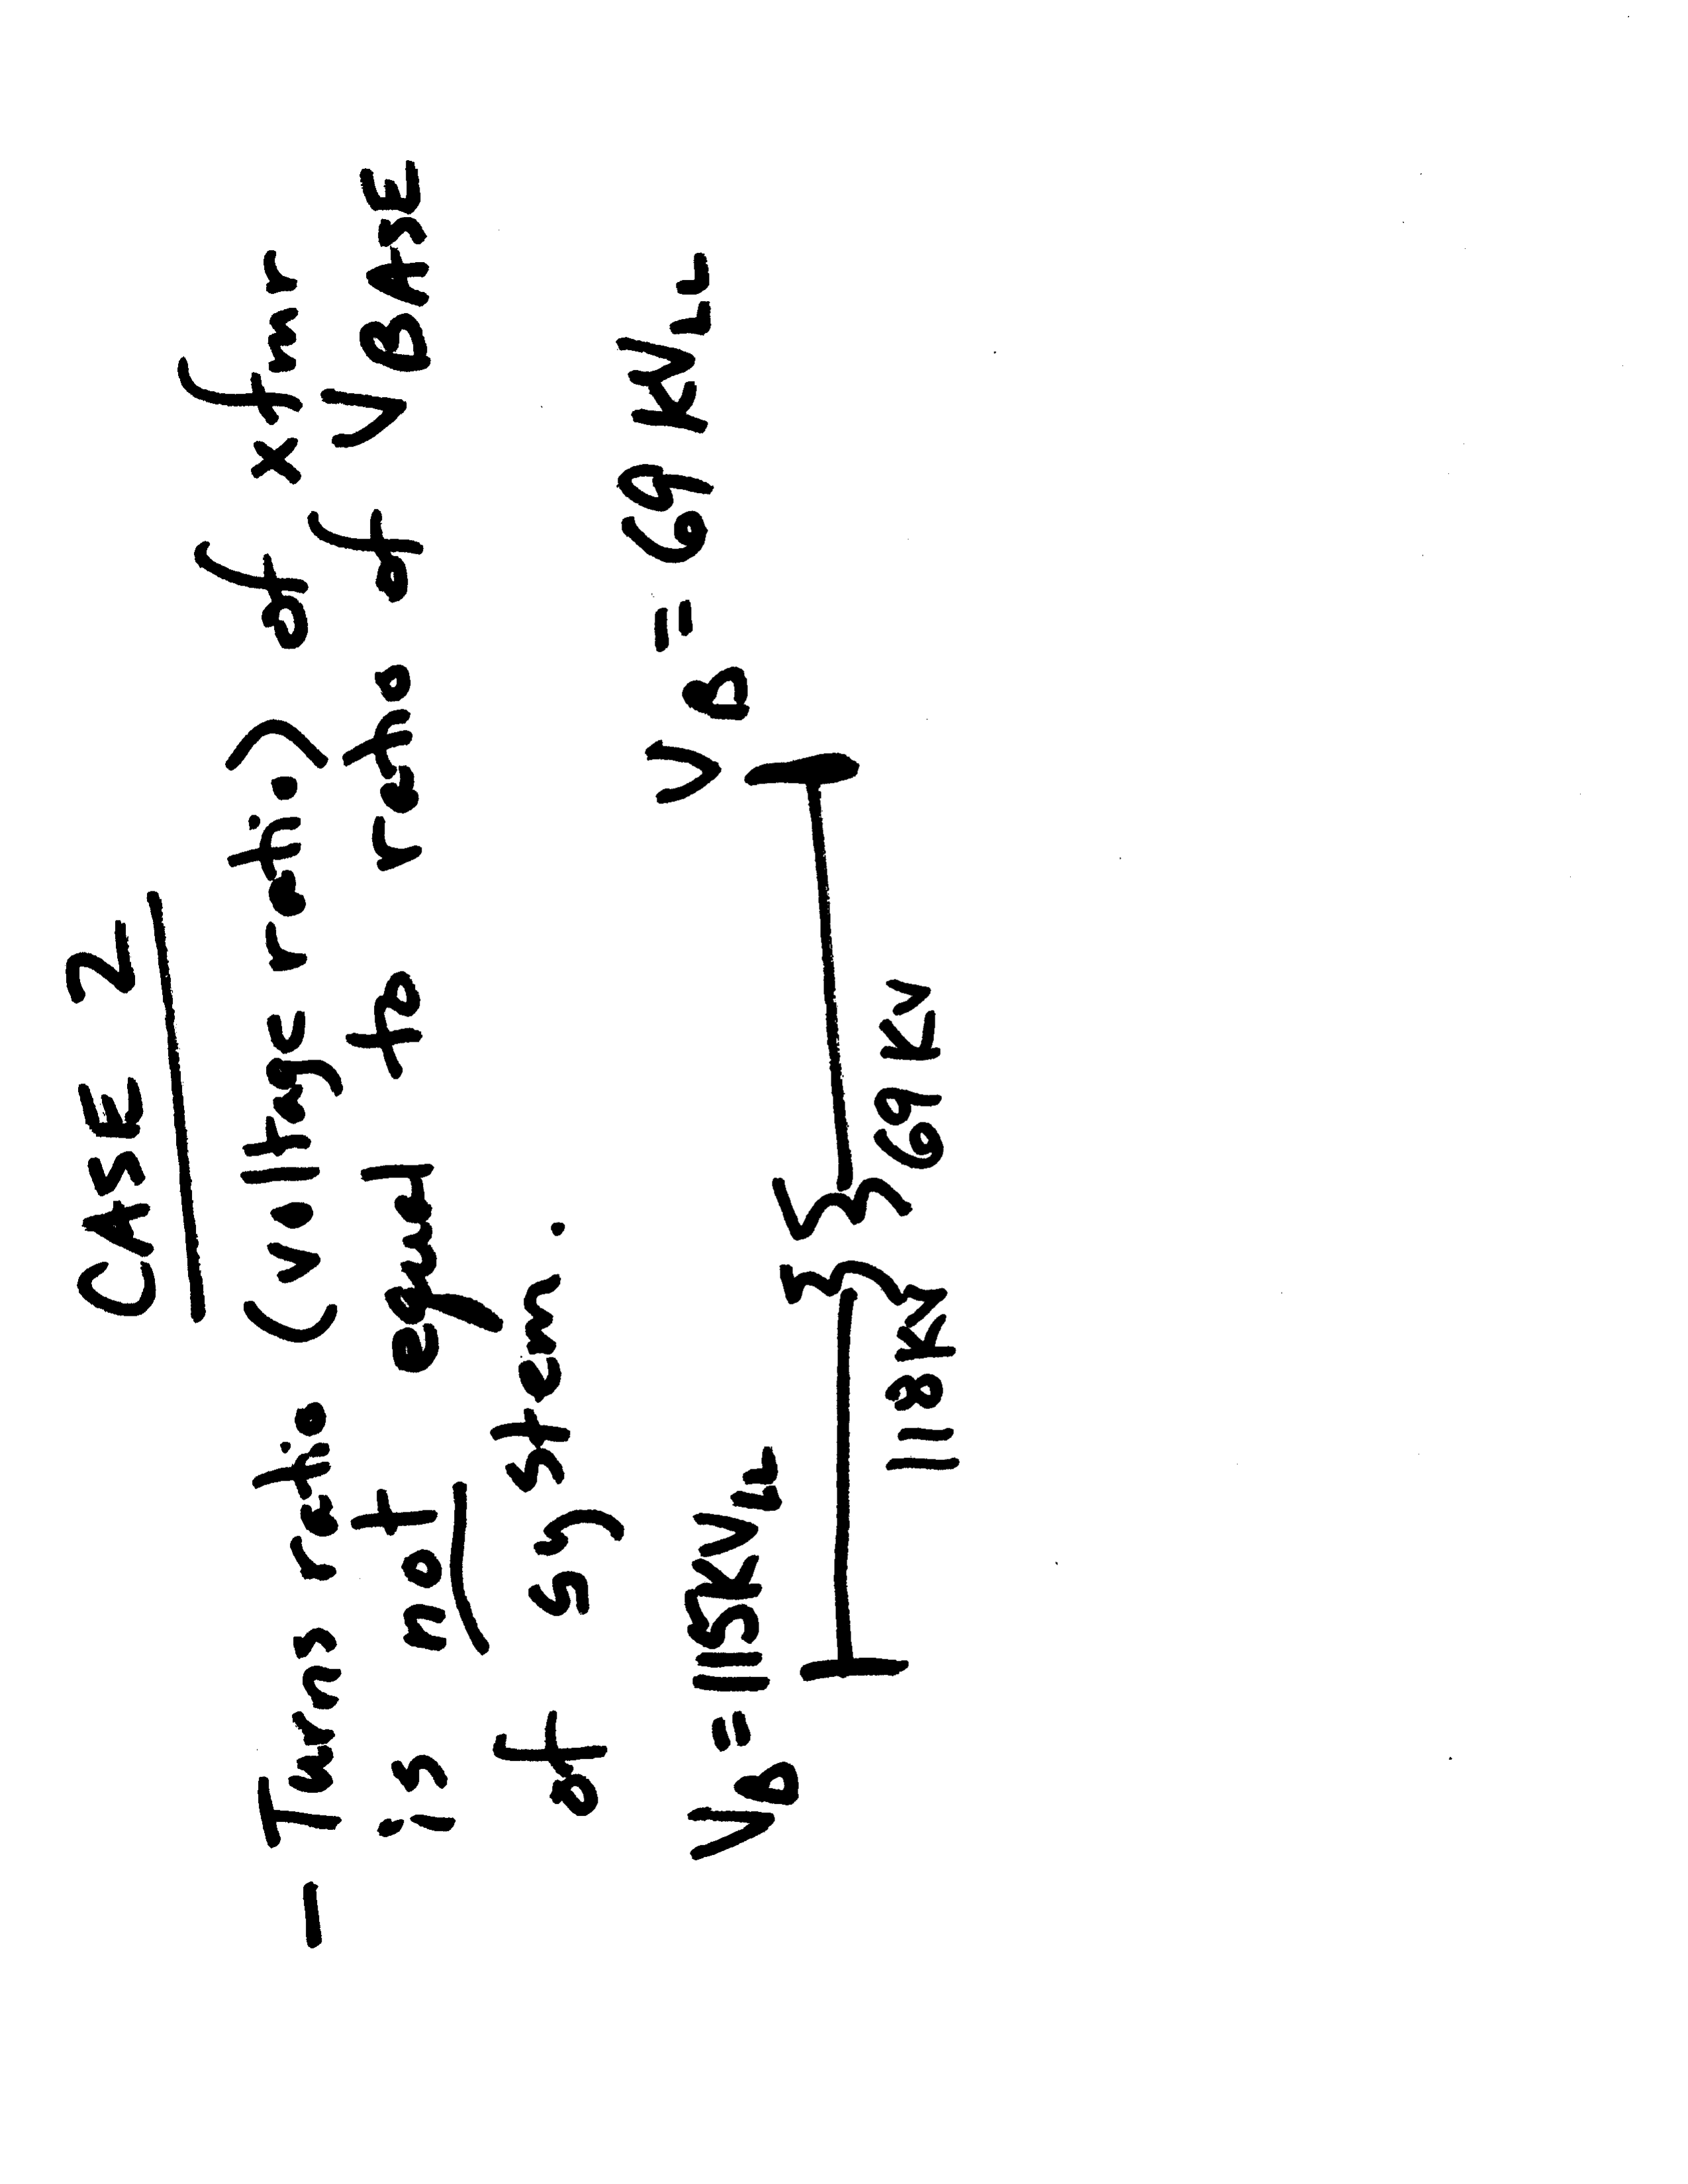 CASE 2
– Turns ratio (voltage ratio) of xfmr
is not equal to ratio of V BASE
of system.
VB = 115KVLL
VB = 69 KVLL
118KV
69 KV